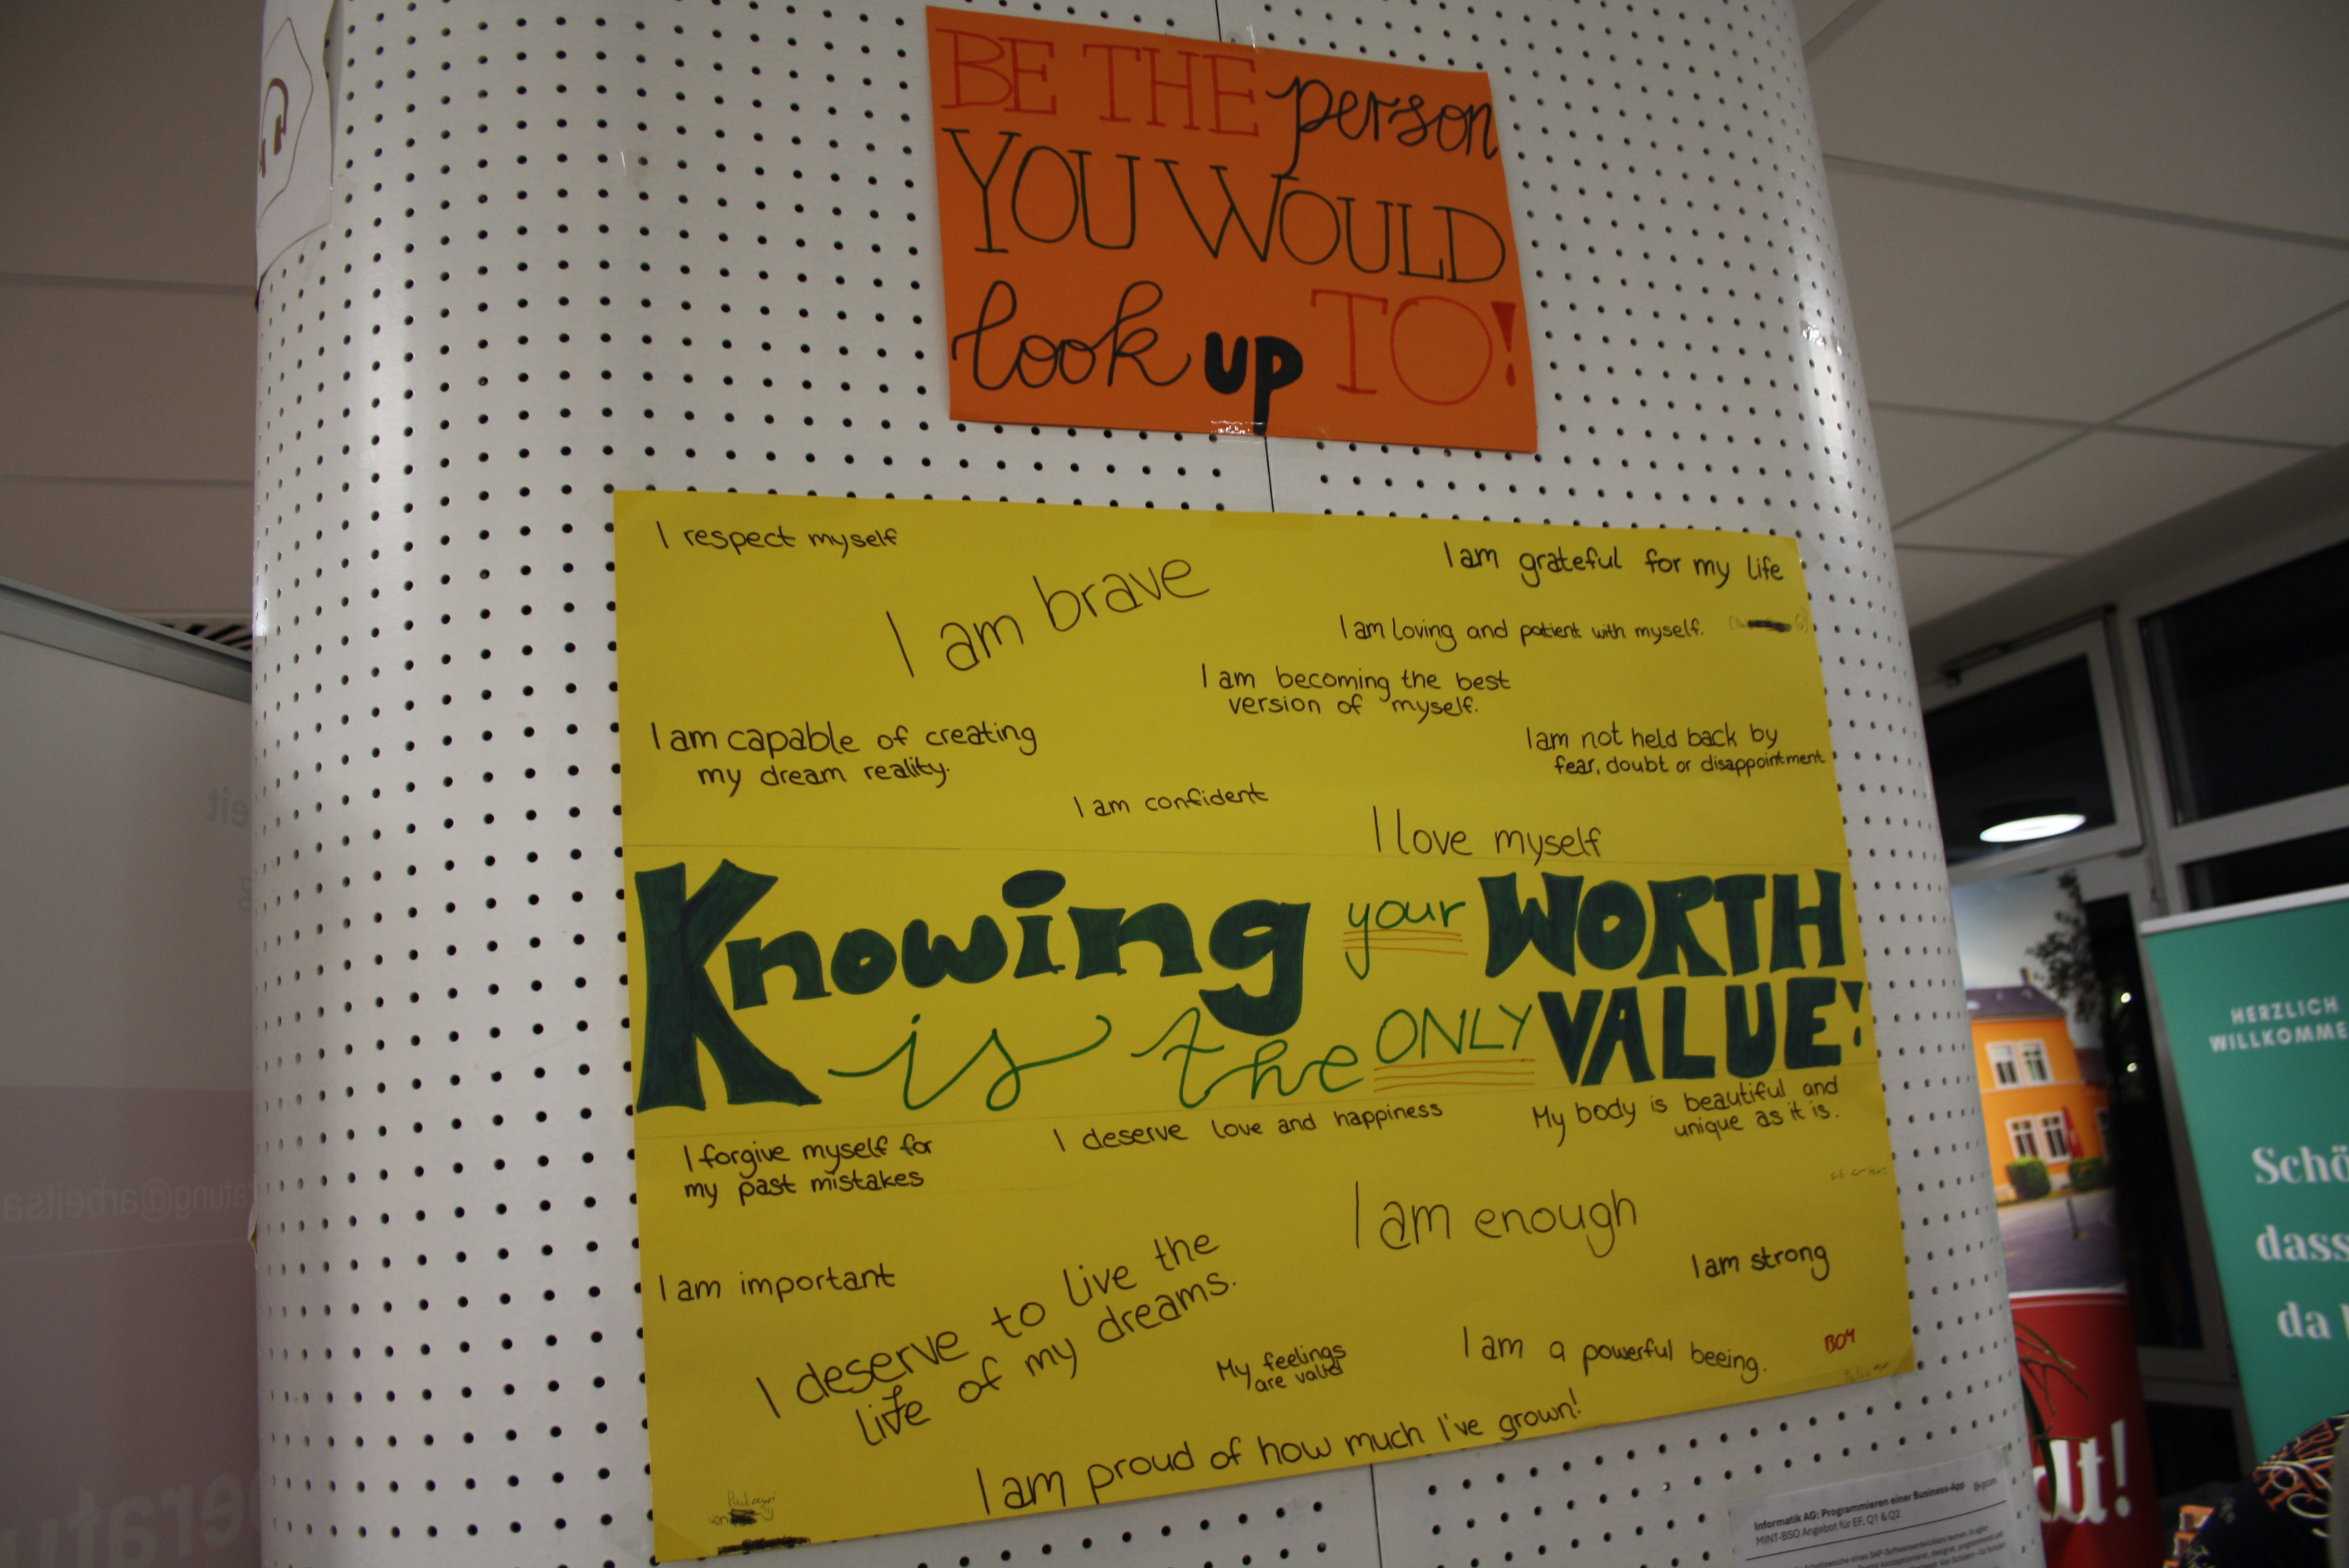 BE THE person
YOU WOULD
look up TO!
I respect myself
I am brave
I am grateful for my life
I am loving and patient with myself.
I am becoming the best
version of myself.
I am capable of creating
my dream reality.
I am not held back by
fear, doubt or disappointment
I am confident
I love myself
Knowing your WORTH
is the ONLY VALUE!
I forgive myself for
my past mistakes
I deserve love and happiness
My body is beautiful and
unique as it is.
I am enough
I am important
I am strong
I deserve to live the
life of my dreams.
My feelings
are valid
I am a powerful beeing.
BO4
I am proud of how much I've grown!
HERZLICH
WILLKOMME
Schö
dass
da
dt!
Informatik AG: Programmieren einer Business-App
MINT-BSO Angebot für EF, Q1 & Q2